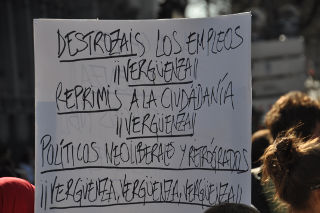 DESTROZAIS LOS EMPLEOS
¡¡VERGÜENZA!!
REPRIMIS A LA CIUDADANÍA
¡¡VERGÜENZA!!
POLÍTICOS NEOLIBERALES Y RETRÓGRADOS
¡¡VERGÜENZA, VERGÜENZA, VERGÜENZA!!